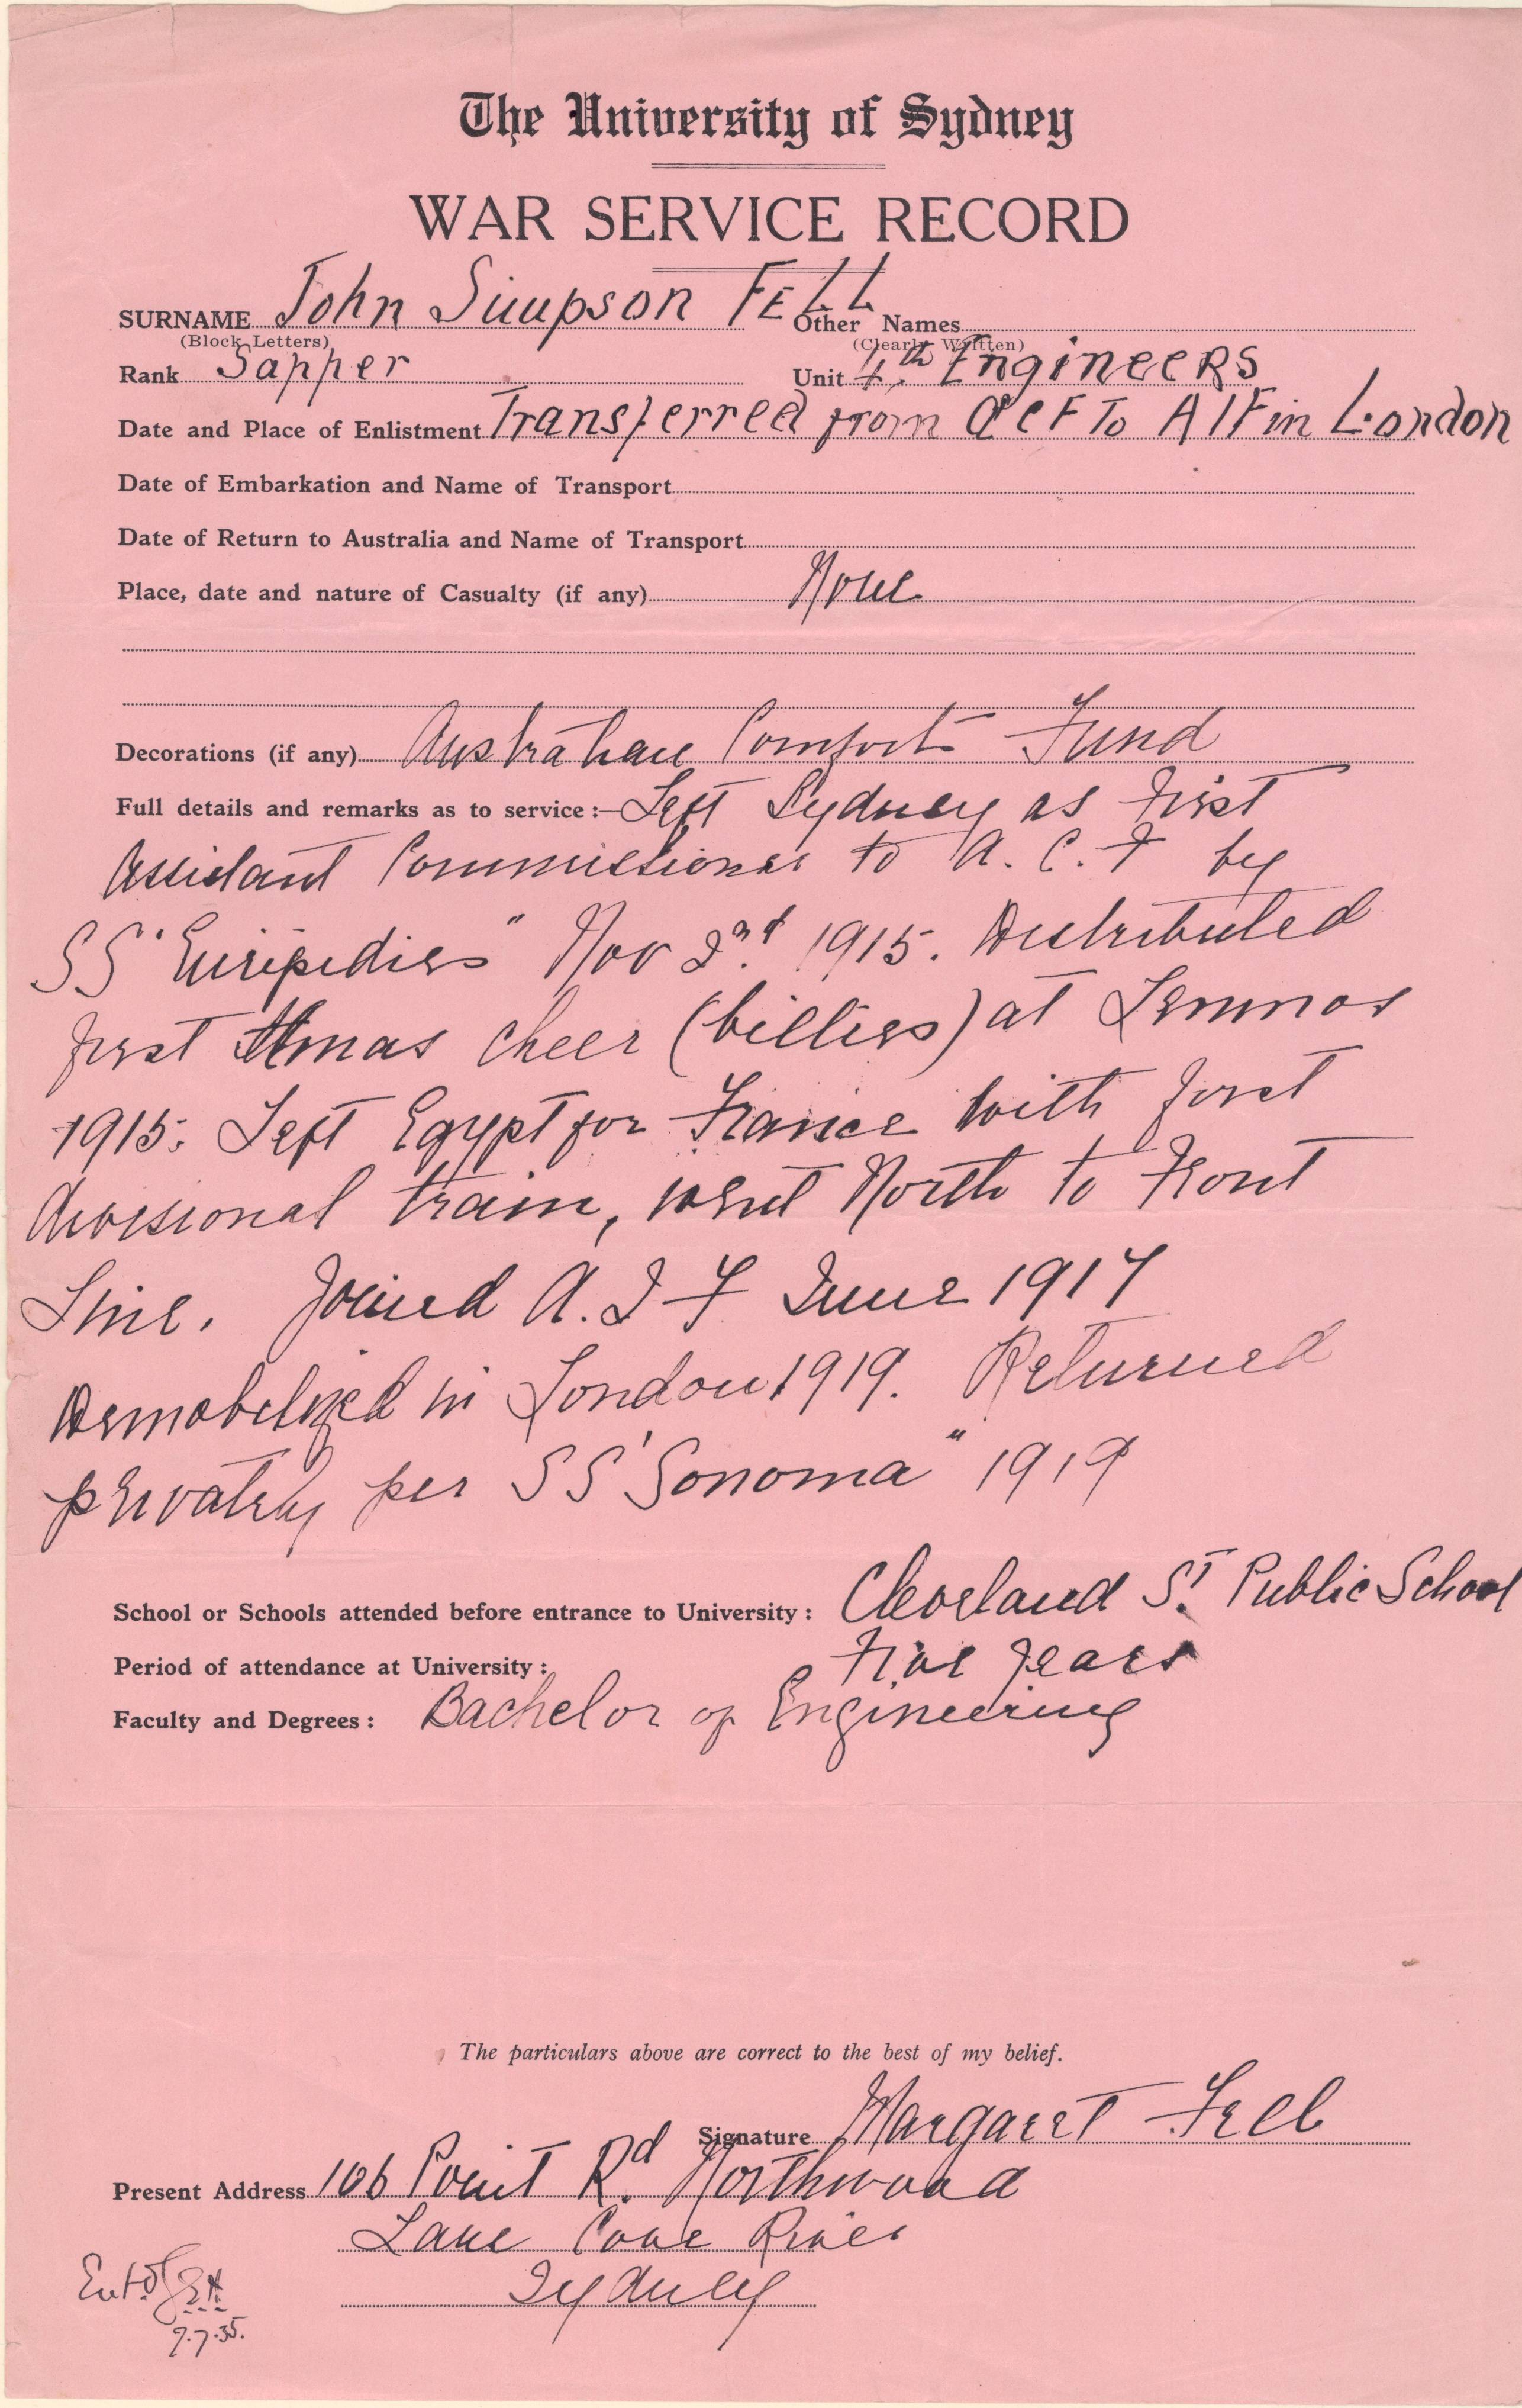 The University of Sydney
WAR SERVICE RECORD
SURNAME John Simpson FELL Other Names
(Block Letters) (Clearly Written)
Rank Sapper Unit 4th Engineers
Date and Place of Enlistment Transferred from ACF To AIF in London
Date of Embarkation and Name of Transport
Date of Return to Australia and Name of Transport
Place, date and nature of Casualty (if any) None
Decorations (if any) Australian Comforts Fund
Full details and remarks as to service:— Left Sydney as First
Assistant Commissioner to A. C. F by
SS "Euripidies" Nov 2nd 1915. Distributed
first Xmas cheer (billies) at Lemnos
1915. Left Egypt for France with first
divisional train, went North to Front
Line. Joined A. I F June 1917
Demobilized in London 1919. Returned
privately per SS 'Sonoma" 1919
School or Schools attended before entrance to University: Cleveland St. Public School
Period of attendance at University: Five years
Faculty and Degrees: Bachelor of Engineering
The particulars above are correct to the best of my belief.
Signature Margaret Fell
Present Address 106 Point Rd. Northwood
Lane Cove River
Sydney
Entd
9.7.35.